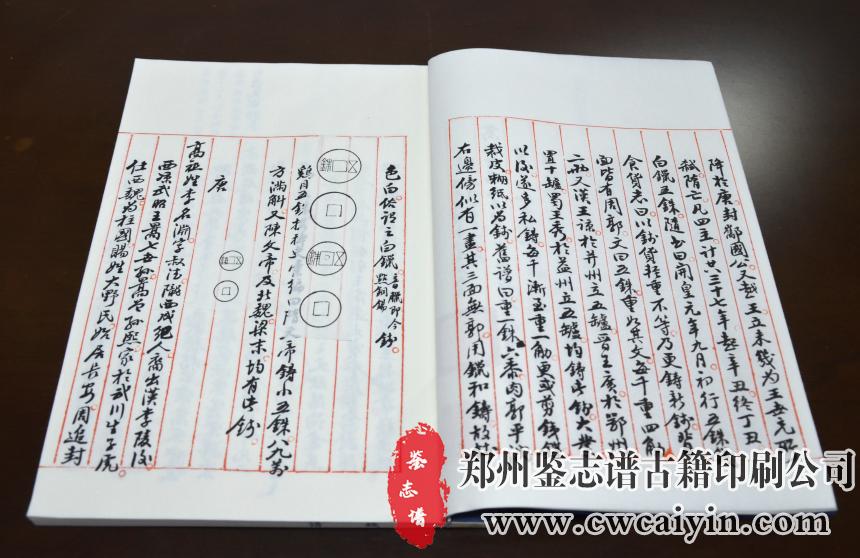 降於唐封鄶國公越王立未幾為王世充
弒隋亡凡四主計三十七年起辛丑終丁丑
白鑞五銖隨書曰開皇元年九月初行五銖
食貨志曰以錢貨輕重不等乃更鑄新錢背
面皆有周郭文曰五銖重如其文每千重四觔
二兩又漢王諒於并州立五罏晉王廣於鄂州
置十罏蜀王秀於益州立五罏均鑄此錢大業
以後遂多私鑄每千漸至重一觔更或剪鐵
裁皮糊紙以為錢舊譜曰重銖六參肉郭平
右邊傍似有一畫其三面無郭用鑞和鑄故錢
色白俗謂之白鑞音臘即今點銅錫錢
五銖
五銖
帝鑄小五銖八九萬
方滿斛又陳文帝及北魏梁末均有此錢
五銖
唐
高祖姓李名淵字叔德隴西成紀人裔出漢李陵後
西涼武昭王暠七世孫暠曾孫熙家於武川生子虎
仕西魏為柱國賜姓大野氏始居長安周追封
鉴志谱
郑州鉴志谱古籍印刷公司
www.cwcaiyin.com